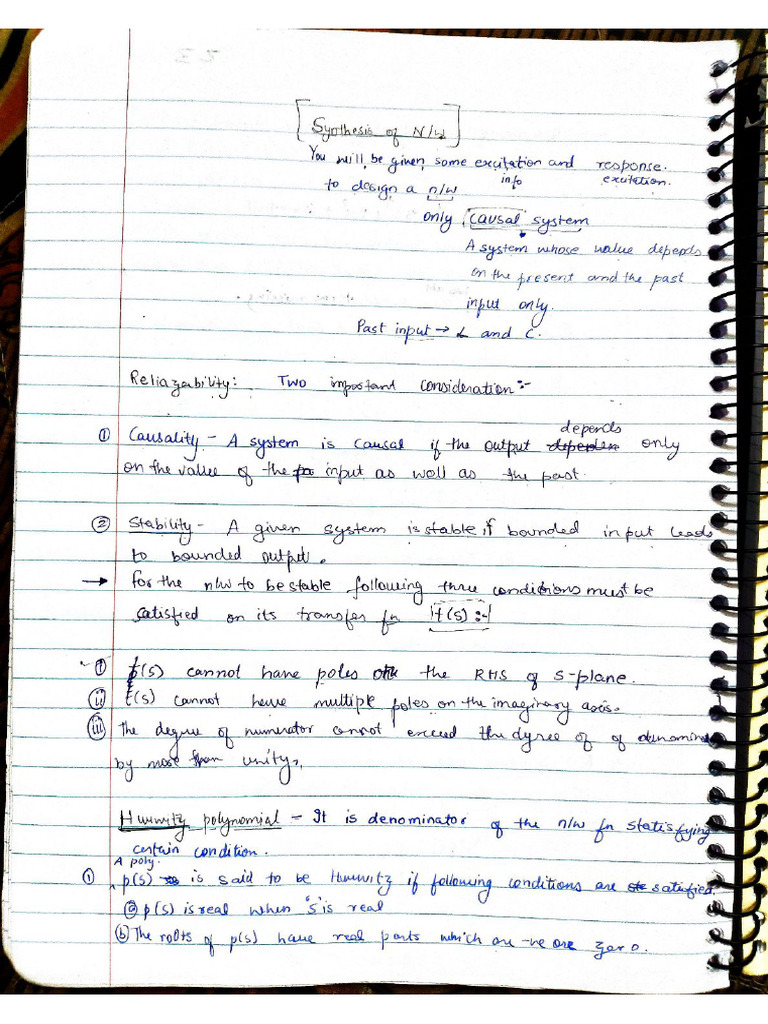 [Synthesis of N/W]
You will be given some excitation and response.
to design a n/w info excitation.
only causal system
A system whose value depends
on the present and the past
input only.
Past input → L and C.
Reliazability: Two important consideration:-
depends
① Causality - A system is causal if the output only
on the value of the input as well as the past.
② Stability - A given system is stable if bounded input leads
to bounded output.
→ for the n/w to be stable following three conditions must be
satisfied on its transfer fn f(s):-
ⓘ f(s) cannot have poles on the RHS of s-plane.
ⓘⓘ f(s) cannot have multiple poles on the imaginary axis.
ⓘⓘⓘ The degree of numerator cannot exceed the dgree of of denomin
by more than unity.
Hurwitz polynomial - It is denominator of the n/w fn statisfying
certain condition.
A poly.
① p(s) is said to be Hurwitz if following conditions are satisfied.
ⓐ p(s) is real when 's' is real
ⓑ The roots of p(s) have real parts which are -ve or zero.